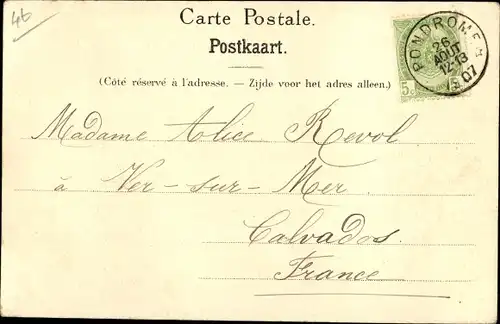 46
Carte Postale.
Postkaart.
(Côté réservé à l'adresse. — Zijde voor het adres alleen.)
PONDROME
26
AOUT
12-13
1907
5c
Madame Alice Revol
à Ver-sur-Mer
Calvados.
France